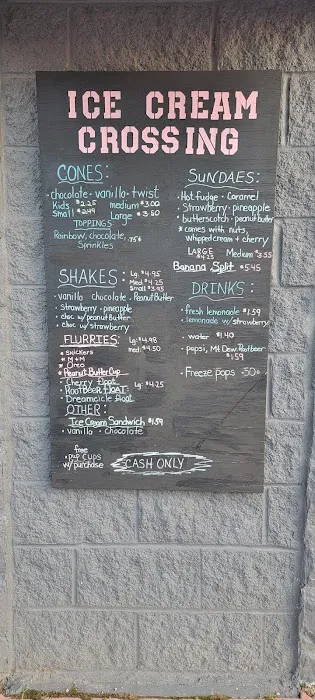 ICE CREAM
CROSSING
CONES:
• chocolate • vanilla • twist
Kids $2.25 medium $3.00
Small $2.49 Large $3.50
TOPPINGS:
Rainbow, chocolate, 75¢
Sprinkles
SHAKES: Lg. $4.95
Med $4.25
Small $3.95
• vanilla chocolate • Peanut Butter
• Strawberry • pineapple
• choc w/ peanut Butter
• choc w/ strawberry
FLURRIES: Lg. $4.98
med. $4.50
* Snickers
* M+M
* Oreo
* Peanut Butter Cup
• Cherry float
• RootBeer FLOAT: Lg. $4.25
• Dreamcicle float
OTHER:
Ice Cream Sandwich $1.59
• vanilla • Chocolate
free
• pup cups
w/ purchase
SUNDAES:
• Hot Fudge • Caramel
• Strawberry • pineapple
• butterscotch • peanut butter
* comes with nuts,
whipped cream + cherry
LARGE $4.25 Medium $3.55
Banana Split $5.45
DRINKS:
• fresh lemonade $1.59
• lemonade w/ strawberry
• water $1.40
• papsi, Mt Dew, Rootbeer
$1.59
• Freeze pops .50¢
CASH ONLY